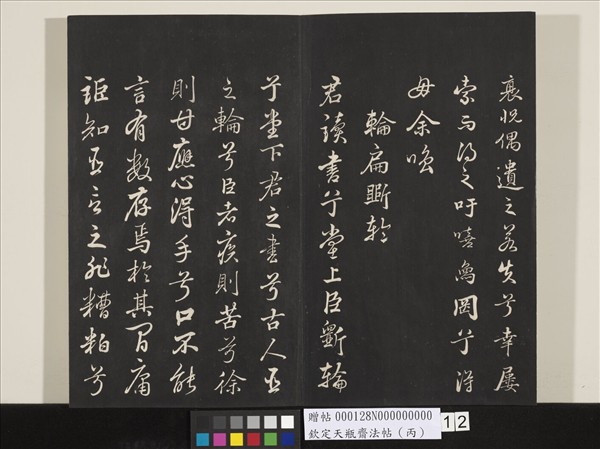 偶遺之若失兮幸屢
索而得之吁嘻象罔兮得
毋余嗤
輪扁斲輪
君讀書兮堂上臣斲輪
兮堂下君之書兮古人臣
之輪兮臣老疾則苦兮徐
則甘應心得手兮口不能
言有數存焉於其間庸
詎知臣言之非糟粕兮
贈帖 000128N000000000
欽定天瓶齋法帖(丙)
12